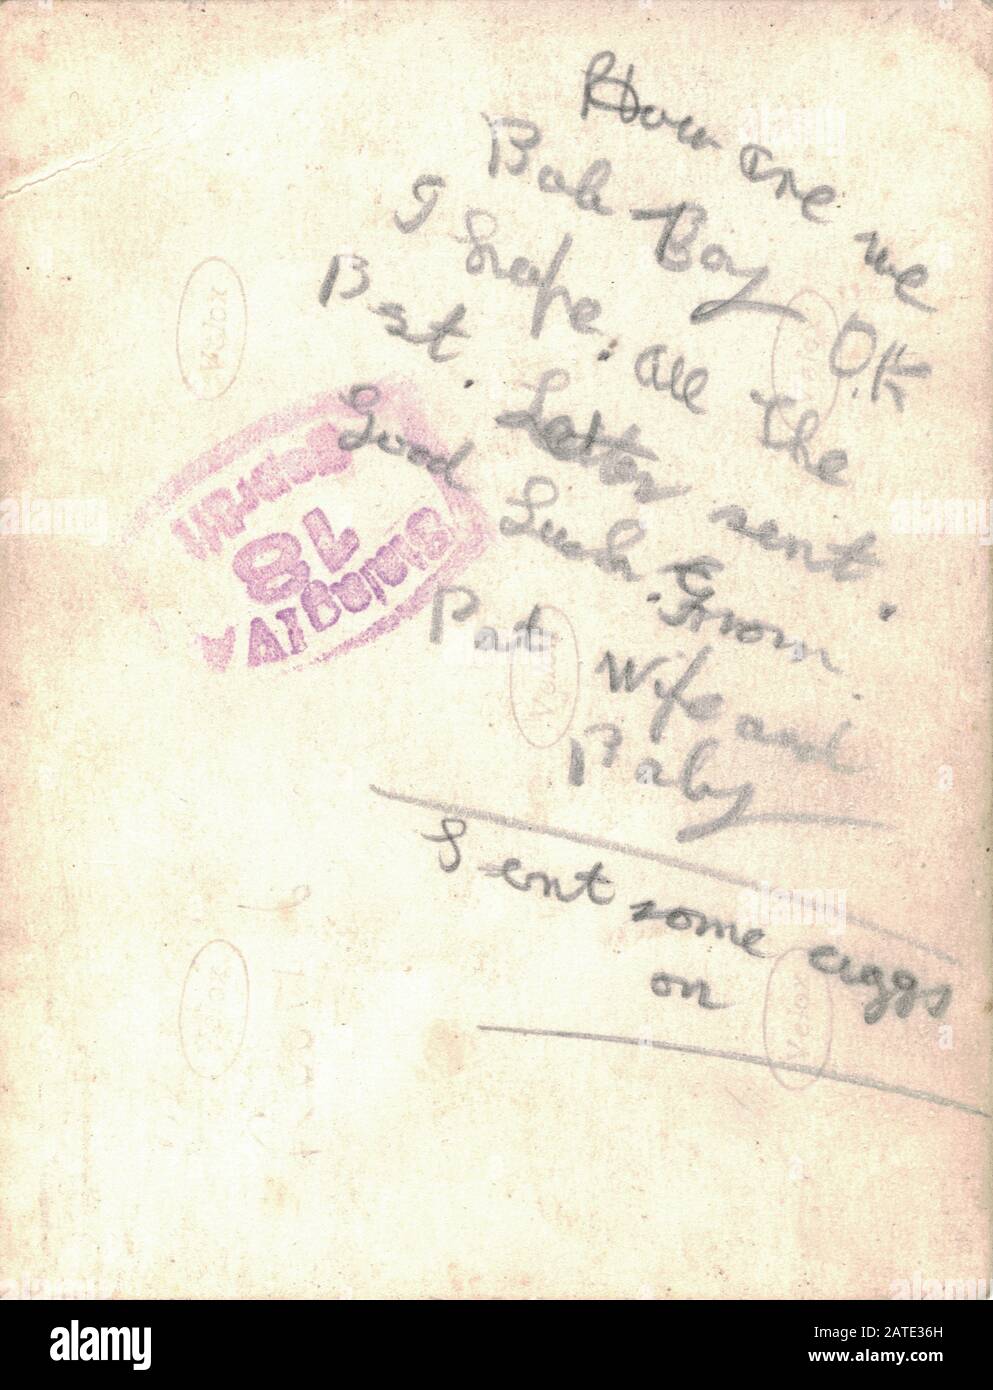 How are we
Bob Boy OK
I hope. all the
Best. Letter sent.
Good Luck. From
Pat Wife and
Baby
Sent some eggs
on
Velox
Velox
Velox
Velox
Velox
78
alamy
Image ID: 2ATE36H
www.alamy.com